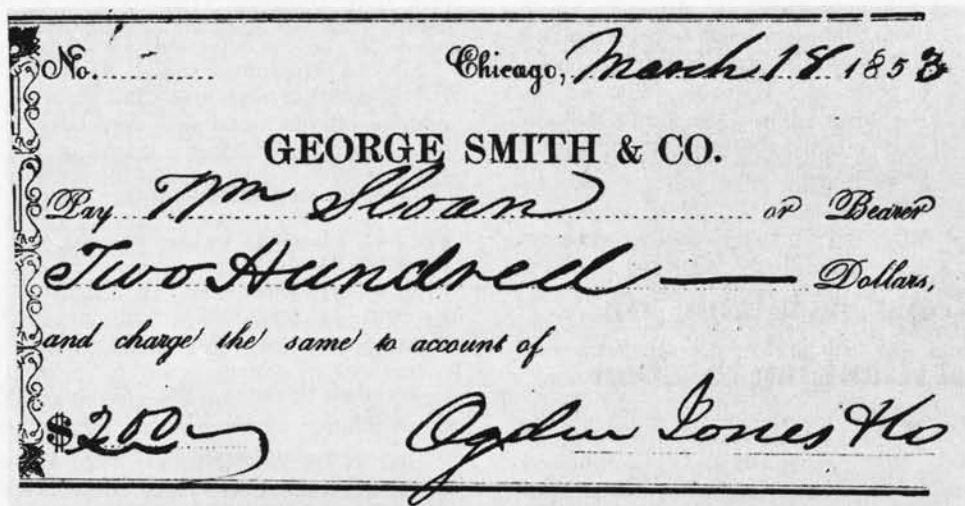 No. Chicago, March 18 1853
GEORGE SMITH & CO.
Pay Wm Sloan or Bearer
Two Hundred — Dollars,
and charge the same to account of
$200 Ogden Jones & Co